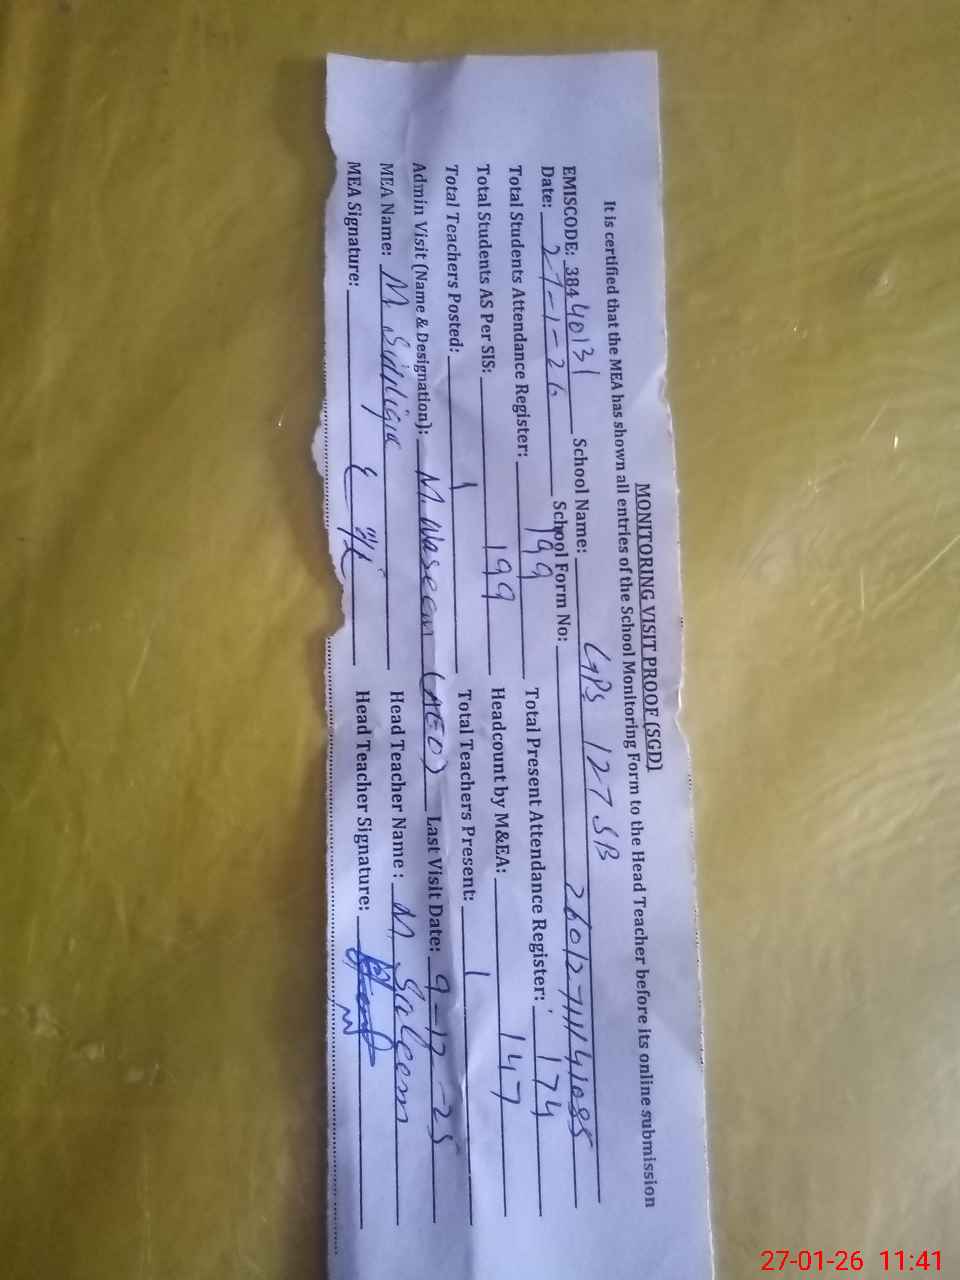 MONITORING VISIT PROOF (SGD)
It is certified that the MEA has shown all entries of the School Monitoring Form to the Head Teacher before its online submission
EMISCODE: 3844 0131 School Name: GPS 127 SB
Date: 27-1-26 School Form No:
Total Students Attendance Register: 199 Total Present Attendance Register: 174
Total Students AS Per SIS: 199 Headcount by M&EA: 147
Total Teachers Posted: 1 Total Teachers Present: 1
Admin Visit (Name & Designation): M. Waseem (AEO) Last Visit Date: 9-12-25
MEA Name: M. Head Teacher Name : M. Saleem
MEA Signature: Head Teacher Signature:
27-01-26 11:41